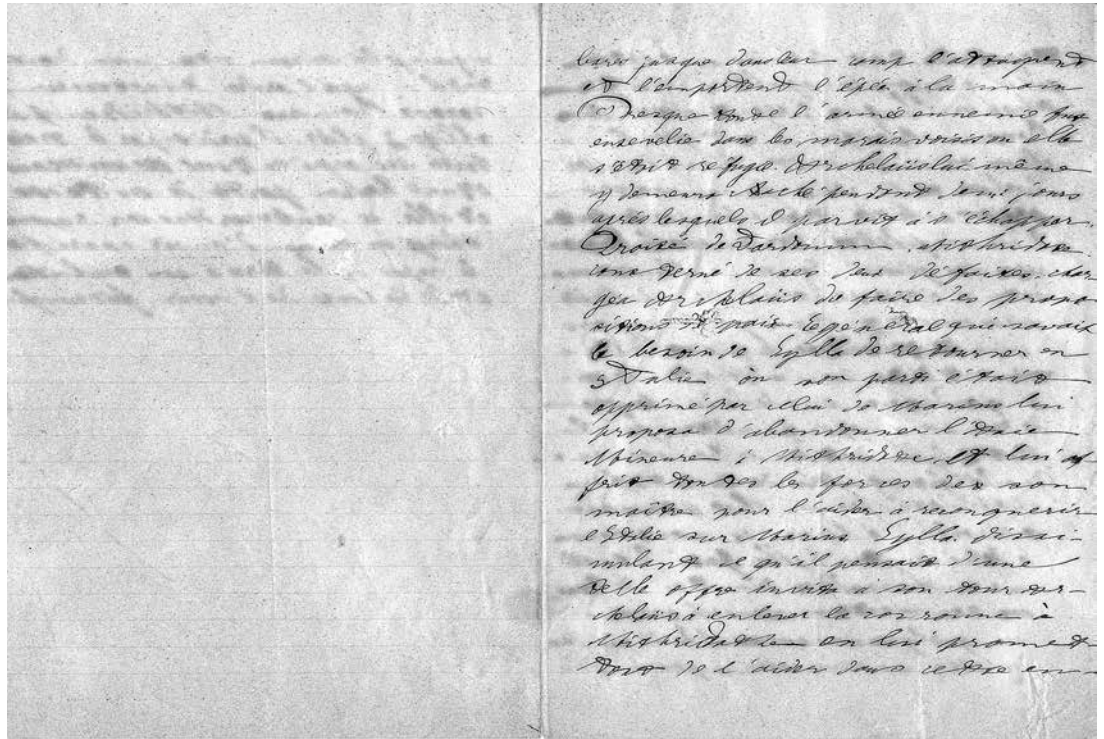 jusque dans leur camp l'attaquent
et l'emportent l'épée à la main
Presque toute l'armée ennemie fut
ensevelie dans les marais voisins où elle
s'était refugié. Archelaüs lui même
y demeura caché pendant deux jours
après lesquels il parvit à s'échapper.
Traité de Dardanum. Mithridate
consterné de ses deux défaites, char
gea Archelaüs de faire des propo
sitions de paix. Ce général qui savait
le besoin de Sylla de retourner en
Italie où son parti était
opprimé par celui de Marius lui
proposa d'abandonner l'Asie
Mineure à Mithridate et lui of
frit toutes les forces de son
maître pour l'aider à reconquerir
l'Italie sur Marius. Sylla dissi
mulant ce qu'il pensait d'une
telle offre invita à son tour Ar-
chelaüs à enlever la couronne à
Mithridate en lui promet
tant de l'aider dans cette en-